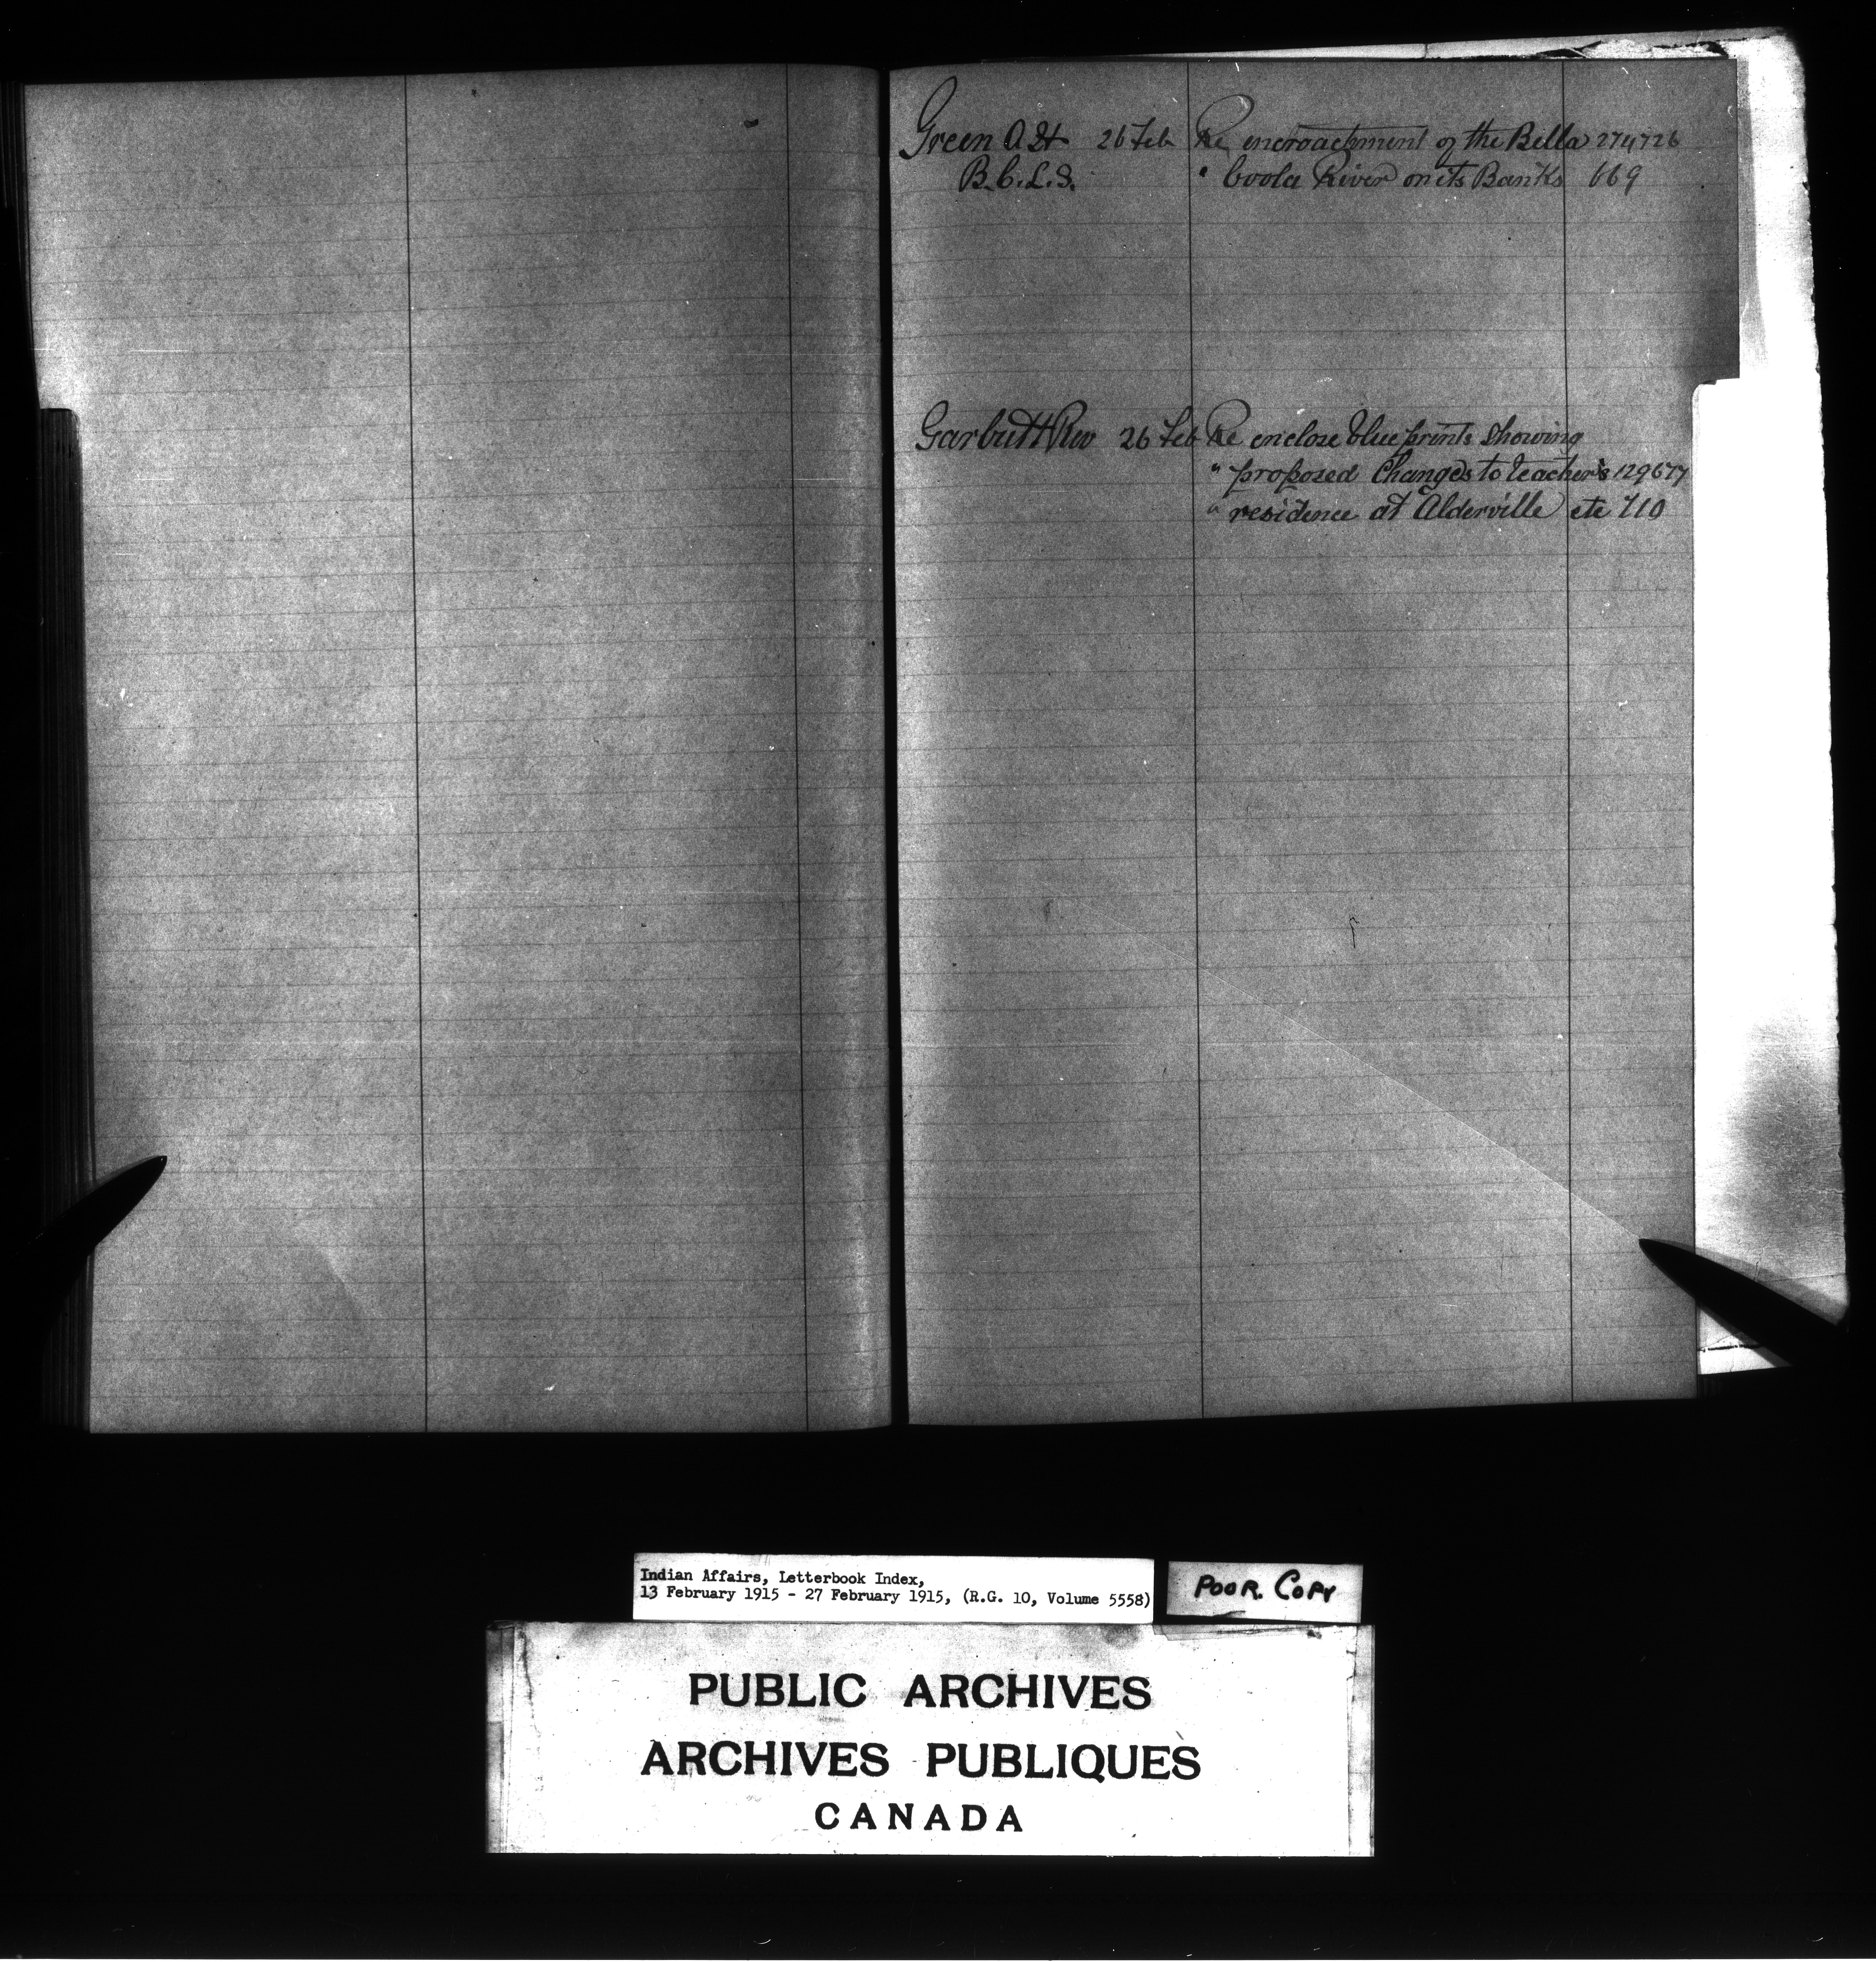 Green A H 26 Feb Re encroachment of the Bella 274726
B.C.L.S. " Coola River on its Banks 669
Garbutt Rev 26 Feb Re enclose blue prints showing
" proposed Changes to teacher's 129677
" residence at Alderville etc 710
Indian Affairs, Letterbook Index,
13 February 1915 - 27 February 1915, (R.G. 10, Volume 5558)
POOR. COPY
PUBLIC ARCHIVES
ARCHIVES PUBLIQUES
CANADA